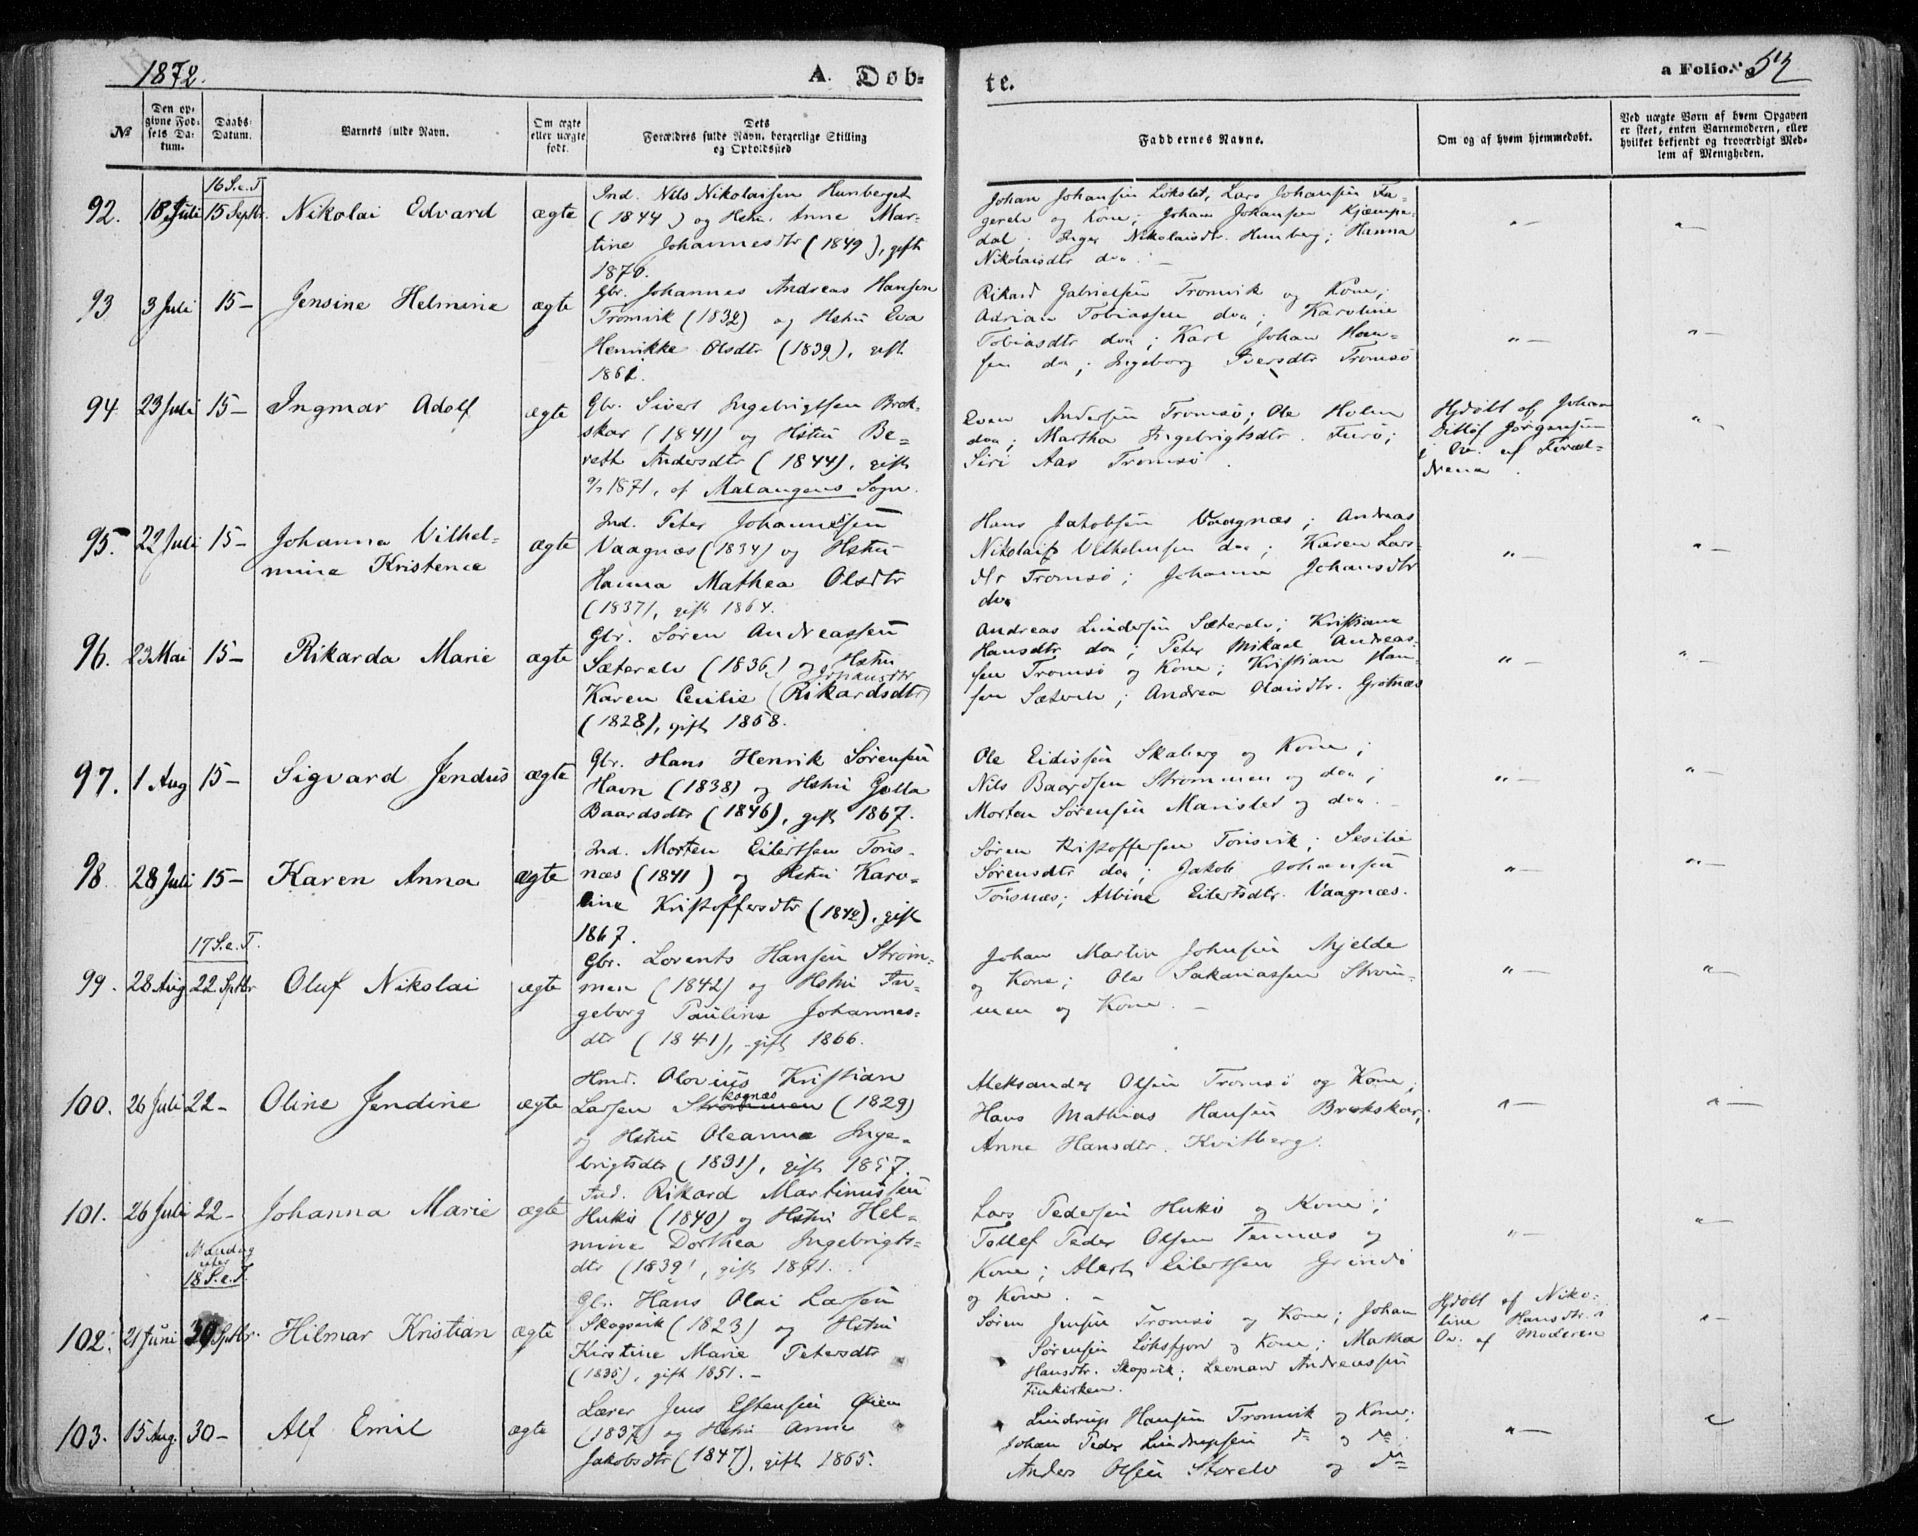 1872.
A. Döb-
te.
a Folio. 52
№
Den op-
givne Fød-
sels Da-
tum.
Daabs-
Datum.
Barnets fulde Navn.
Om ægte
eller uægte
født.
Dets
Forældres fulde Navn, borgerlige Stilling
og Opholdssted
Faddernes Navne.
Om og af hvem hjemmedøbt.
Ved uægte Børn af hvem Opgaven
er skeet, enten Barnemoderen, eller
hvilket bekjendt og troværdigt Med-
lem af Menigheden.
16 S.e.T.
92. 18 Juli 15 Septbr. Nikolai Edvard ægte
Ind. Nils Nikolaisen Hunberget
(1844) og Hstru Anne Mar-
tine Johannesdtr (1849), gift
1870.
Johan Johansen Løkslet, Lars Johansen Fa-
gerelv og Kone; Johan Johansen Kjæmpe-
dal; Inger Nikolaisdtr. Hunberg; Hanna
Nikolaisdtr do. —
" — " —
93 3 Juli 15 — Jensine Helmine ægte
Gbr. Johannes Andreas Hansen
Tromvik (1832) og Hstru Eva
Henrikke Olsdtr (1839), gift
1861.
Rikard Gabrielsen Tromvik og Kone;
Adrian Tobiassen do; Karoline
Tobiasdtr do; Karl Johan Han-
sen do; Ingeborg Iversdtr Tromsø
" — " —
94 23 Juli 15 — Ingmar Adolf ægte
Gbr. Sivert Ingebrigtsen Brok-
skar (1841) og Hstru Be-
reth Andersdtr (1844), gift
1871, af Malangens Sogn.
Even Andersen Tromsø; Ole Holm
do; Martha Ingebrigtsdtr. Furø;
Siri Aas Tromsø.
Hjdøbt af Johan
Ditlef Jørgensen
i Ov. af Foræl-
drene.
" —
95. 22 Juli 15 — Johanna Vilhel-
mine Kristence ægte
Ind. Peter Johannessen
Vaagnæs (1834) og Hstru
Hanna Mathea Olsdtr
(1837), gift 1864.
Hans Jakobsen Vaagnæs; Andreas
Nikolai Vilhelmsen do; Karen Lars-
dtr Tromsø; Johanna Johansdtr
do
" — " —
96. 23 Mai 15 — Rikarda Marie ægte
Gbr. Søren Andreassen
Sæterelv (1836) og Hstru
Johansdtr
Karen Cecilie (Rikardsdtr)
(1828), gift 1858.
Andreas Lindersen Sæterelv; Kristiane
Hansdtr do; Peter Mikael Andreas-
sen Tromsø og Kone; Kristian Han-
sen Sæterelv; Andrea Olaisdtr. Grøtnæs
" — " —
97. 1 Aug 15 — Sigvard Jendus ægte
Gbr. Hans Henrik Sørensen
Havn (1838) og Hstru Golla
Baardsdtr (1846), gift 1867.
Ole Eidissen Skaberg og Kone;
Nils Baardsen Strømmen og do;
Morten Sørensen Marislet og do. —
" — " —
98. 28 Juli 15 — Karen Anna ægte
Ind. Morten Eilertsen Tøns-
næs (1841) og Hstru Karo-
line Kristoffersdtr (1842), gift
1867.
Søren Kristoffersen Tønsvik; Sesilie
Sørensdtr do; Jakob Johansen
Tønsnæs; Albine Eilertsdtr. Vaagnæs.
" — " —
17 S.e.T.
99. 28 Aug 22 Septbr Oluf Nikolai ægte
Gbr. Lorents Hansen Strøm-
men (1842) og Hstru In-
geborg Pauline Johannes-
dtr (1841), gift 1866.
Johan Martin Johnsen Mjelde
og Kone; Ole Sakariassen Strøm-
men og Kone. —
" — " —
100. 26 Juli 22 — Oline Jendine ægte
Hmd. Olovius Kristian
Larsen Strømmen (1829)
og Hstru Oleanna Inge-
brigtsdtr (1831), gift 1857.
Aleksander Olsen Tromsø og Kone;
Hans Mathias Hansen Brokskar;
Anne Hansdtr. Kvitberg.
" — " —
101. 26 Juli 22 — Johanna Marie ægte
Ind. Rikard Martinussen
Hukø (1840) og Hstru Hel-
mine Dorthea Ingebrigts-
dtr (1839), gift 1871.
Lars Pedersen Hukø og Kone;
Tollef Peder Olsen Tennæs og
Kone; Alert Eilertsen Grindø
og Kone. —
" — " —
Mandag
efter
18 S.e.T.
102. 21 Juni 30 Septbr. Hilmar Kristian ægte
Gbr. Hans Olai Larsen
Skogsvik (1823) og Hstru
Kirstine Marie Petersdtr
(1835), gift 1851. —
Søren Jensen Tromsø og Kone; Johan
Sørensen Løksfjord og Kone; Martha
Hansdtr. Skogsvik; Leonard Andreassen
Finkirken.
Hjdøbt af Niko-
line Hansdtr. i
Ov. af Moderen
" —
103. 15 Aug. 30 — Alf Emil ægte
Lærer Jens Estensen Øien
(1837) og Hstru Anne
Jakobsdtr (1847), gift 1865.
Lindrup Hansen Tromvik og Kone;
Johan Peder Lindrupsen do og do
Anders Olsen Storelv og do
" —